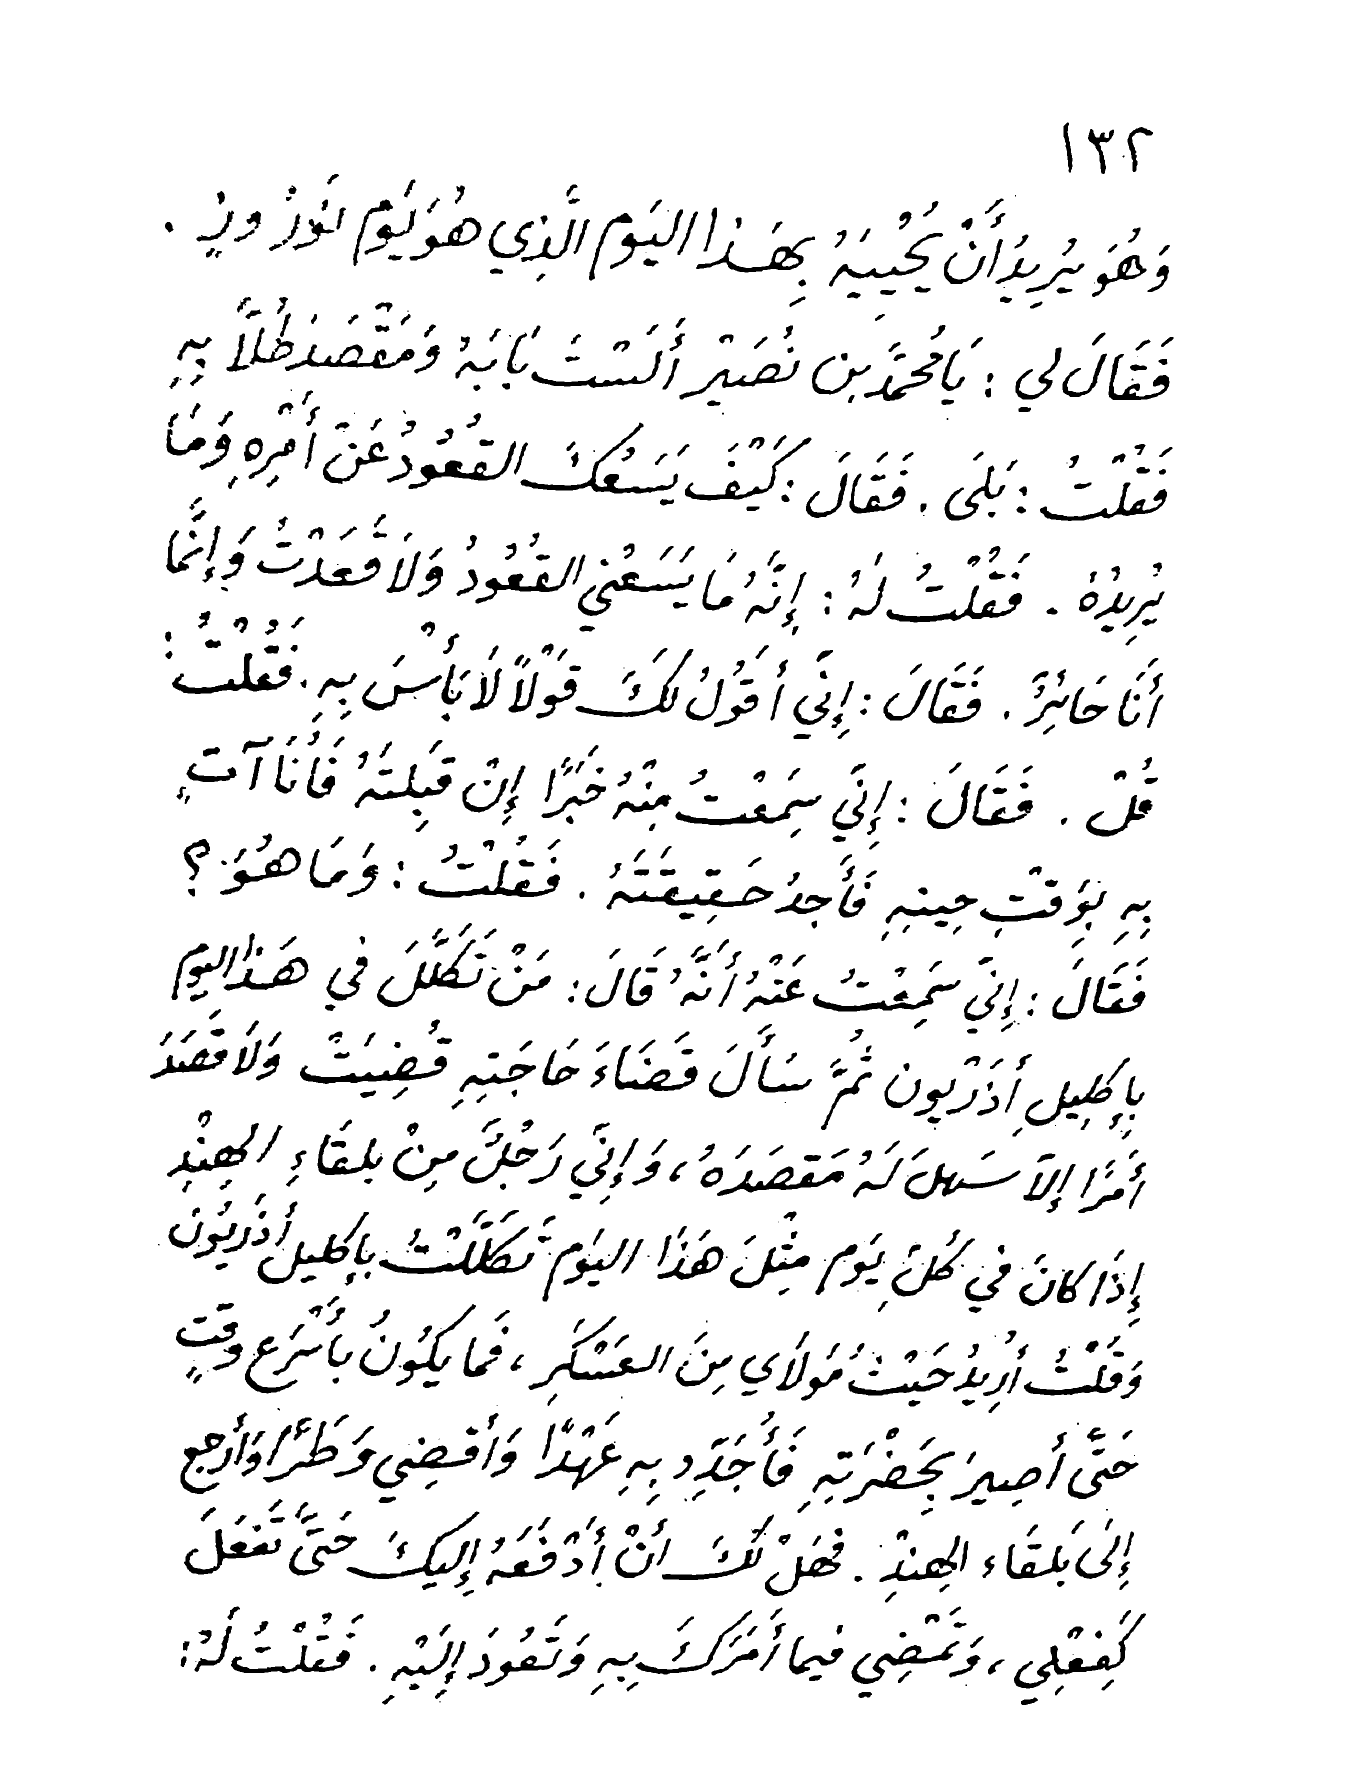 ١٣٢
وَهُوَ يُرِيدُ أَنْ يُحْيِيَهُ بِهَذا اليَوْم الَّذِي هُوَ يَوْم نَوْرُوز .
فَقَالَ لي : يَا مُحمَّدُ بن نُصَيْر أَلَسْتَ بَابَهُ وَمَقْصَد طُلَّابِهِ
فَقُلْتُ : بَلَى . فَقَالَ : كَيْفَ يَسَعُكَ القُعُودُ عَنْ أَمْرِهِ وَمَا
يُرِيدُهُ . فَقُلْتُ لَهُ : إِنَّهُ مَا يَسَعُنِي القُعُودُ وَلَا قَعَدْتُ وَإِنَّمَا
أَنَا حَائِرٌ . فَقَالَ : إِنِّي أَقُولُ لَكَ قَوْلًا لَا بَأْسَ بِهِ . فَقُلْتُ :
قُلْ . فَقَالَ : إِنِّي سَمِعْتُ مِنْهُ خَبَرًا إِنْ قَبِلتَهُ فَأَنَا آتٍ
بِهِ بِوَقْتِ حِينِهِ فَأَجِدُ حَقِيقَتَهُ . فَقُلْتُ : وَمَا هُوَ ؟
فَقَالَ : إِنِّي سَمِعْتُ عَنْهُ أَنَّهُ قَالَ : مَنْ تَكَلَّلَ في هَذا اليوم
بِإِكلِيلِ أَذَرْيون ثُمَّ سَأَلَ قَضَاءَ حَاجَتِهِ قُضِيَتْ وَلَا قَصَدَ
أَمْرًا إِلَّا سَهلَ لَهُ مَقصَدَهُ ، وَإِنِّي رَجُلٌ مِنْ بلقَاءِ الهِنْدِ
إِذَا كانَ في كُلِّ يَوم مِثْلَ هَذَا اليَوْم تَكَلَّلْتُ بإِكليل أذَرْيُون
وَقُلْتُ أُرِيدُ حَيْثُ مَوْلَاي مِنَ العَسْكَرِ ، فَما يَكُونُ بأَسْرَع وقتٍ
حَتَّى أصِيرَ بحَضْرَتِهِ فَأُجَدِّد بِهِ عَهْدًا وَأقضِي وَطَرًا وَأَرجع
إِلَى بَلقَاء الهِندْ . فهَلْ لَكَ أَنْ أَدْفَعَهُ إِليكَ حَتَّى تَفعَلَ
كَفِعْلِي ، وَتَمْضِي فيما أَمَرَكَ بِهِ وَتَعُودَ إِلَيْهِ . فَقُلْتُ لَهُ :